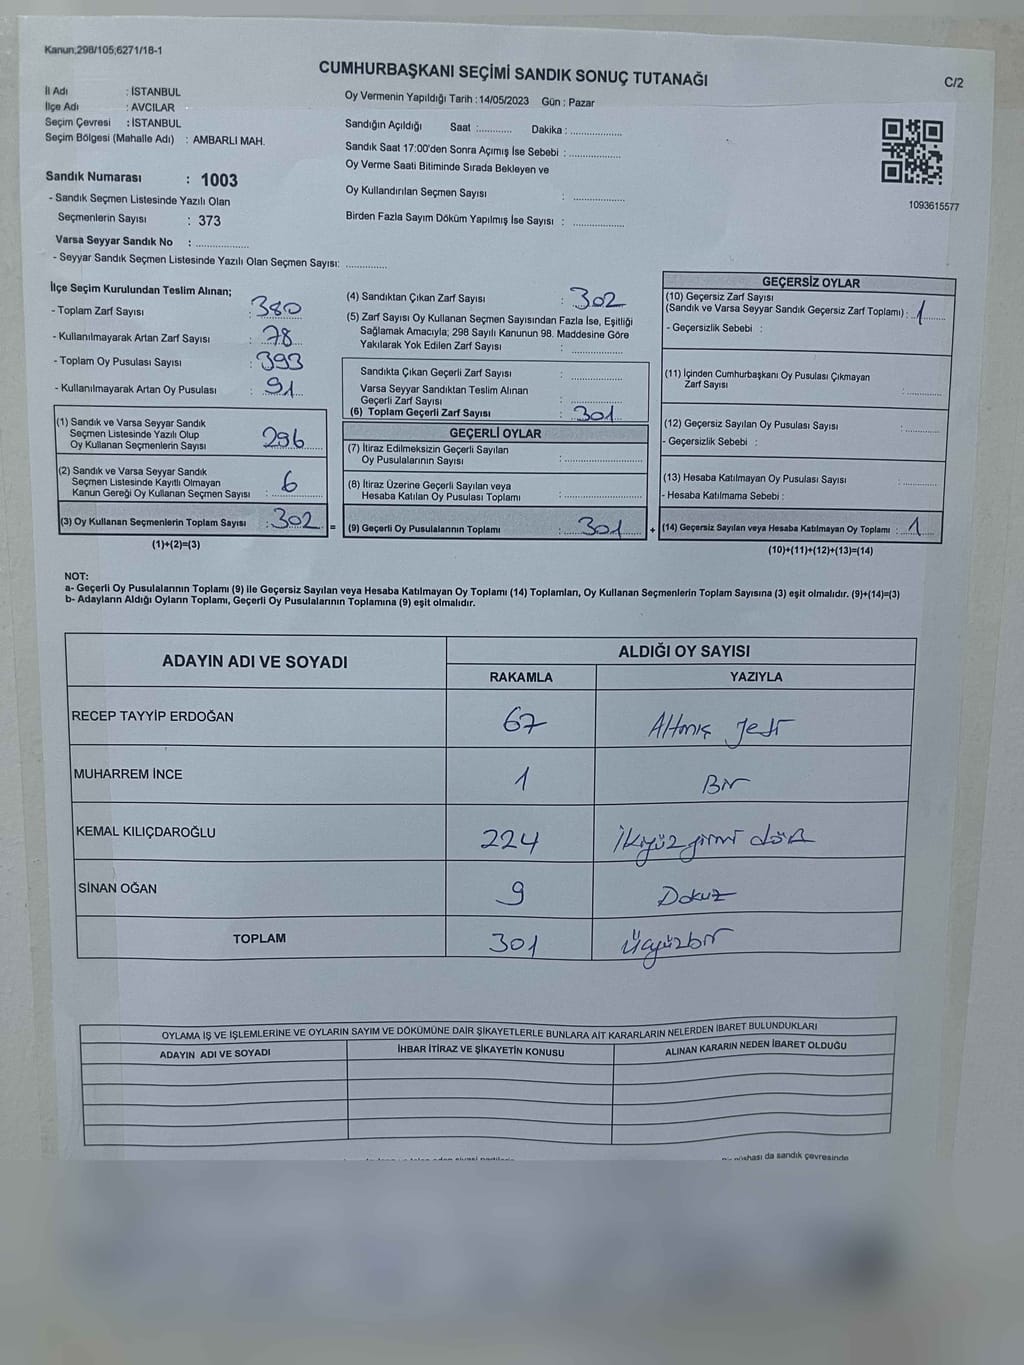 Kanun;298/105;6271/18-1
CUMHURBAŞKANI SEÇİMİ SANDIK SONUÇ TUTANAĞI
C/2
İl Adı : İSTANBUL
İlçe Adı : AVCILAR
Seçim Çevresi : İSTANBUL
Seçim Bölgesi (Mahalle Adı) : AMBARLI MAH.
Sandık Numarası : 1003
- Sandık Seçmen Listesinde Yazılı Olan
Seçmenlerin Sayısı : 373
Varsa Seyyar Sandık No : ................
- Seyyar Sandık Seçmen Listesinde Yazılı Olan Seçmen Sayısı: ............
Oy Vermenin Yapıldığı Tarih : 14/05/2023 Gün : Pazar
Sandığın Açıldığı Saat :............ Dakika : ................
Sandık Saat 17:00'den Sonra Açımış İse Sebebi : ................
Oy Verme Saati Bitiminde Sırada Bekleyen ve
Oy Kullandırılan Seçmen Sayısı : ................
Birden Fazla Sayım Döküm Yapılmış İse Sayısı : ................
1093615577
İlçe Seçim Kurulundan Teslim Alınan;
- Toplam Zarf Sayısı : 380
- Kullanılmayarak Artan Zarf Sayısı : 78
- Toplam Oy Pusulası Sayısı : 393
- Kullanılmayarak Artan Oy Pusulası : 91
(1) Sandık ve Varsa Seyyar Sandık
Seçmen Listesinde Yazılı Olup
Oy Kullanan Seçmenlerin Sayısı 296
(2) Sandık ve Varsa Seyyar Sandık
Seçmen Listesinde Kayıtlı Olmayan
Kanun Gereği Oy Kullanan Seçmen Sayısı : 6
(3) Oy Kullanan Seçmenlerin Toplam Sayısı : 302 =
(1)+(2)=(3)
(4) Sandıktan Çıkan Zarf Sayısı : 302
(5) Zarf Sayısı Oy Kullanan Seçmen Sayısından Fazla İse, Eşitliği
Sağlamak Amacıyla; 298 Sayılı Kanunun 98. Maddesine Göre
Yakılarak Yok Edilen Zarf Sayısı : ................
Sandıkta Çıkan Geçerli Zarf Sayısı : ................
Varsa Seyyar Sandıktan Teslim Alınan
Geçerli Zarf Sayısı : ................
(6) Toplam Geçerli Zarf Sayısı : 301
GEÇERLİ OYLAR
(7) İtiraz Edilmeksizin Geçerli Sayılan
Oy Pusulalarının Sayısı : ................
(8) İtiraz Üzerine Geçerli Sayılan veya
Hesaba Katılan Oy Pusulası Toplamı : ................
(9) Geçerli Oy Pusulalarının Toplamı : 301 +
GEÇERSİZ OYLAR
(10) Geçersiz Zarf Sayısı
(Sandık ve Varsa Seyyar Sandık Geçersiz Zarf Toplamı) : 1
- Geçersizlik Sebebi :
(11) İçinden Cumhurbaşkanı Oy Pusulası Çıkmayan
Zarf Sayısı : ............
(12) Geçersiz Sayılan Oy Pusulası Sayısı : ............
- Geçersizlik Sebebi :
(13) Hesaba Katılmayan Oy Pusulası Sayısı : ............
- Hesaba Katılmama Sebebi :
(14) Geçersiz Sayılan veya Hesaba Katılmayan Oy Toplamı : 1
(10)+(11)+(12)+(13)=(14)
NOT:
a- Geçerli Oy Pusulalarının Toplamı (9) ile Geçersiz Sayılan veya Hesaba Katılmayan Oy Toplamı (14) Toplamları, Oy Kullanan Seçmenlerin Toplam Sayısına (3) eşit olmalıdır. (9)+(14)=(3)
b- Adayların Aldığı Oyların Toplamı, Geçerli Oy Pusulalarının Toplamına (9) eşit olmalıdır.
ADAYIN ADI VE SOYADI ALDIĞI OY SAYISI
RAKAMLA YAZIYLA
RECEP TAYYİP ERDOĞAN 67 Altmış yedi
MUHARREM İNCE 1 Bir
KEMAL KILIÇDAROĞLU 224 İkiyüz yirmi dört
SİNAN OĞAN 9 Dokuz
TOPLAM 301 Üçyüzbir
OYLAMA İŞ VE İŞLEMLERİNE VE OYLARIN SAYIM VE DÖKÜMÜNE DAİR ŞİKAYETLERLE BUNLARA AİT KARARLARIN NELERDEN İBARET BULUNDUKLARI
ADAYIN ADI VE SOYADI İHBAR İTİRAZ VE ŞİKAYETİN KONUSU ALINAN KARARIN NEDEN İBARET OLDUĞU
da sandık çevresinde